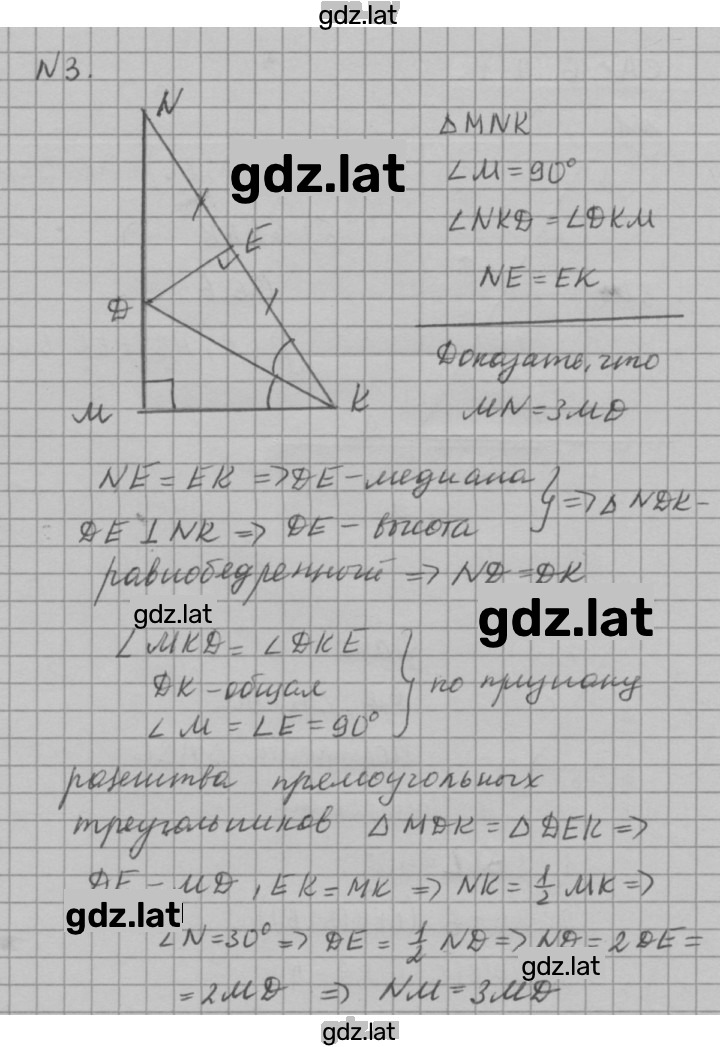 gdz.lat
N3.
N
E
D
M
K
△MNK
∠M = 90°
∠NKD = ∠DKM
NE = EK
Доказать, что
MN = 3MD
gdz.lat
NE = EK => DE - медиана
DE ⊥ NK => DE - высота
} => △ NDK -
равнобедренный => ND = DK
gdz.lat
gdz.lat
∠MKD = ∠DKE
DK - общая
∠M = ∠E = 90°
} по признаку
равенства прямоугольных
треугольников △ MDK = △ DEK =>
DE = MD, EK = MK => NK = 1/2 MK =>
gdz.lat
∠N = 30° => DE = 1/2 ND => ND = 2DE =
gdz.lat
= 2MD => NM = 3MD
gdz.lat